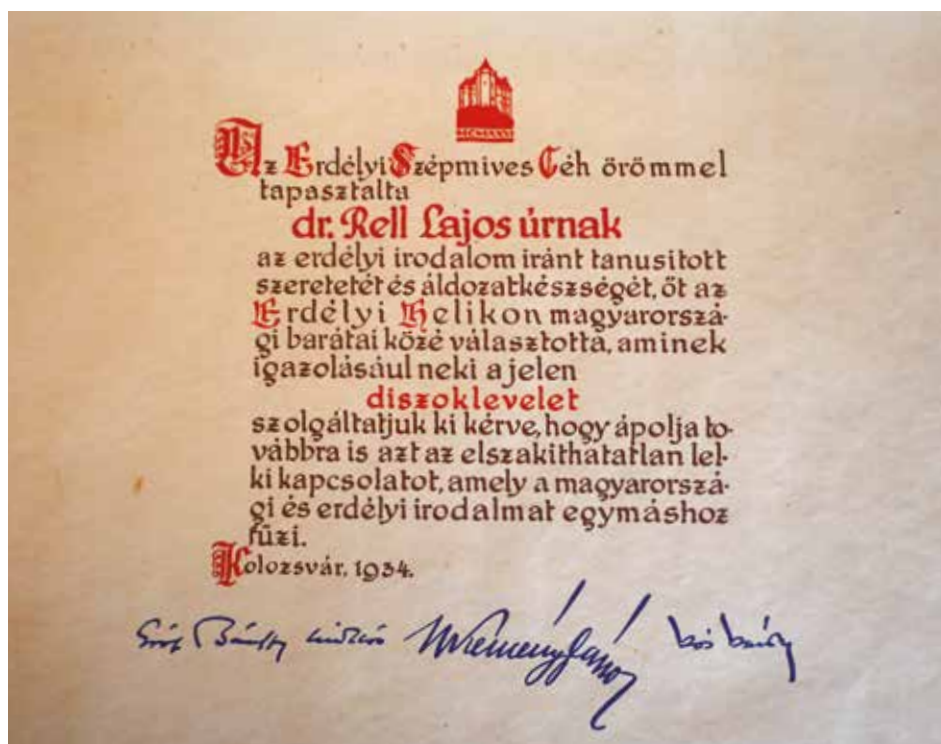 MCMXXX
Az Erdélyi Szépmives Céh örömmel
tapasztalta
dr. Rell Lajos úrnak
az erdélyi irodalom iránt tanusitott
szeretetét és áldozatkészségét, őt az
Erdélyi Helikon magyarorszá-
gi barátai közé választotta, aminek
igazolásául neki a jelen
diszoklevelet
szolgáltatjuk ki kérve, hogy ápolja to-
vábbra is azt az elszakithatatlan lel-
ki kapcsolatot, amely a magyarorszá-
gi és erdélyi irodalmat egymáshoz
fűzi.
Kolozsvár, 1934.
Gróf Bánffy Miklós Kemény János Kós Károly